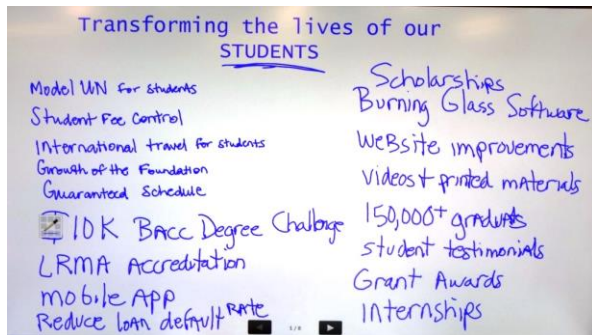 Transforming the lives of our
STUDENTS
Model UN for students
Student Fee Control
International travel for students
Growth of the Foundation
Guaranteed Schedule
10K Bacc Degree Challenge
LRMA Accreditation
mobile App
Reduce loan default RATE
Scholarships
Burning Glass Software
WeBsite improvements
videos + printed materials
150,000+ graduates
student testimonials
Grant Awards
Internships
1/8